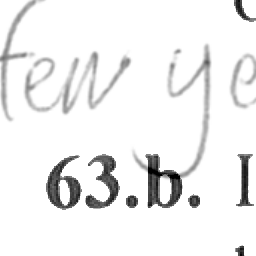 few ye
63.b. I